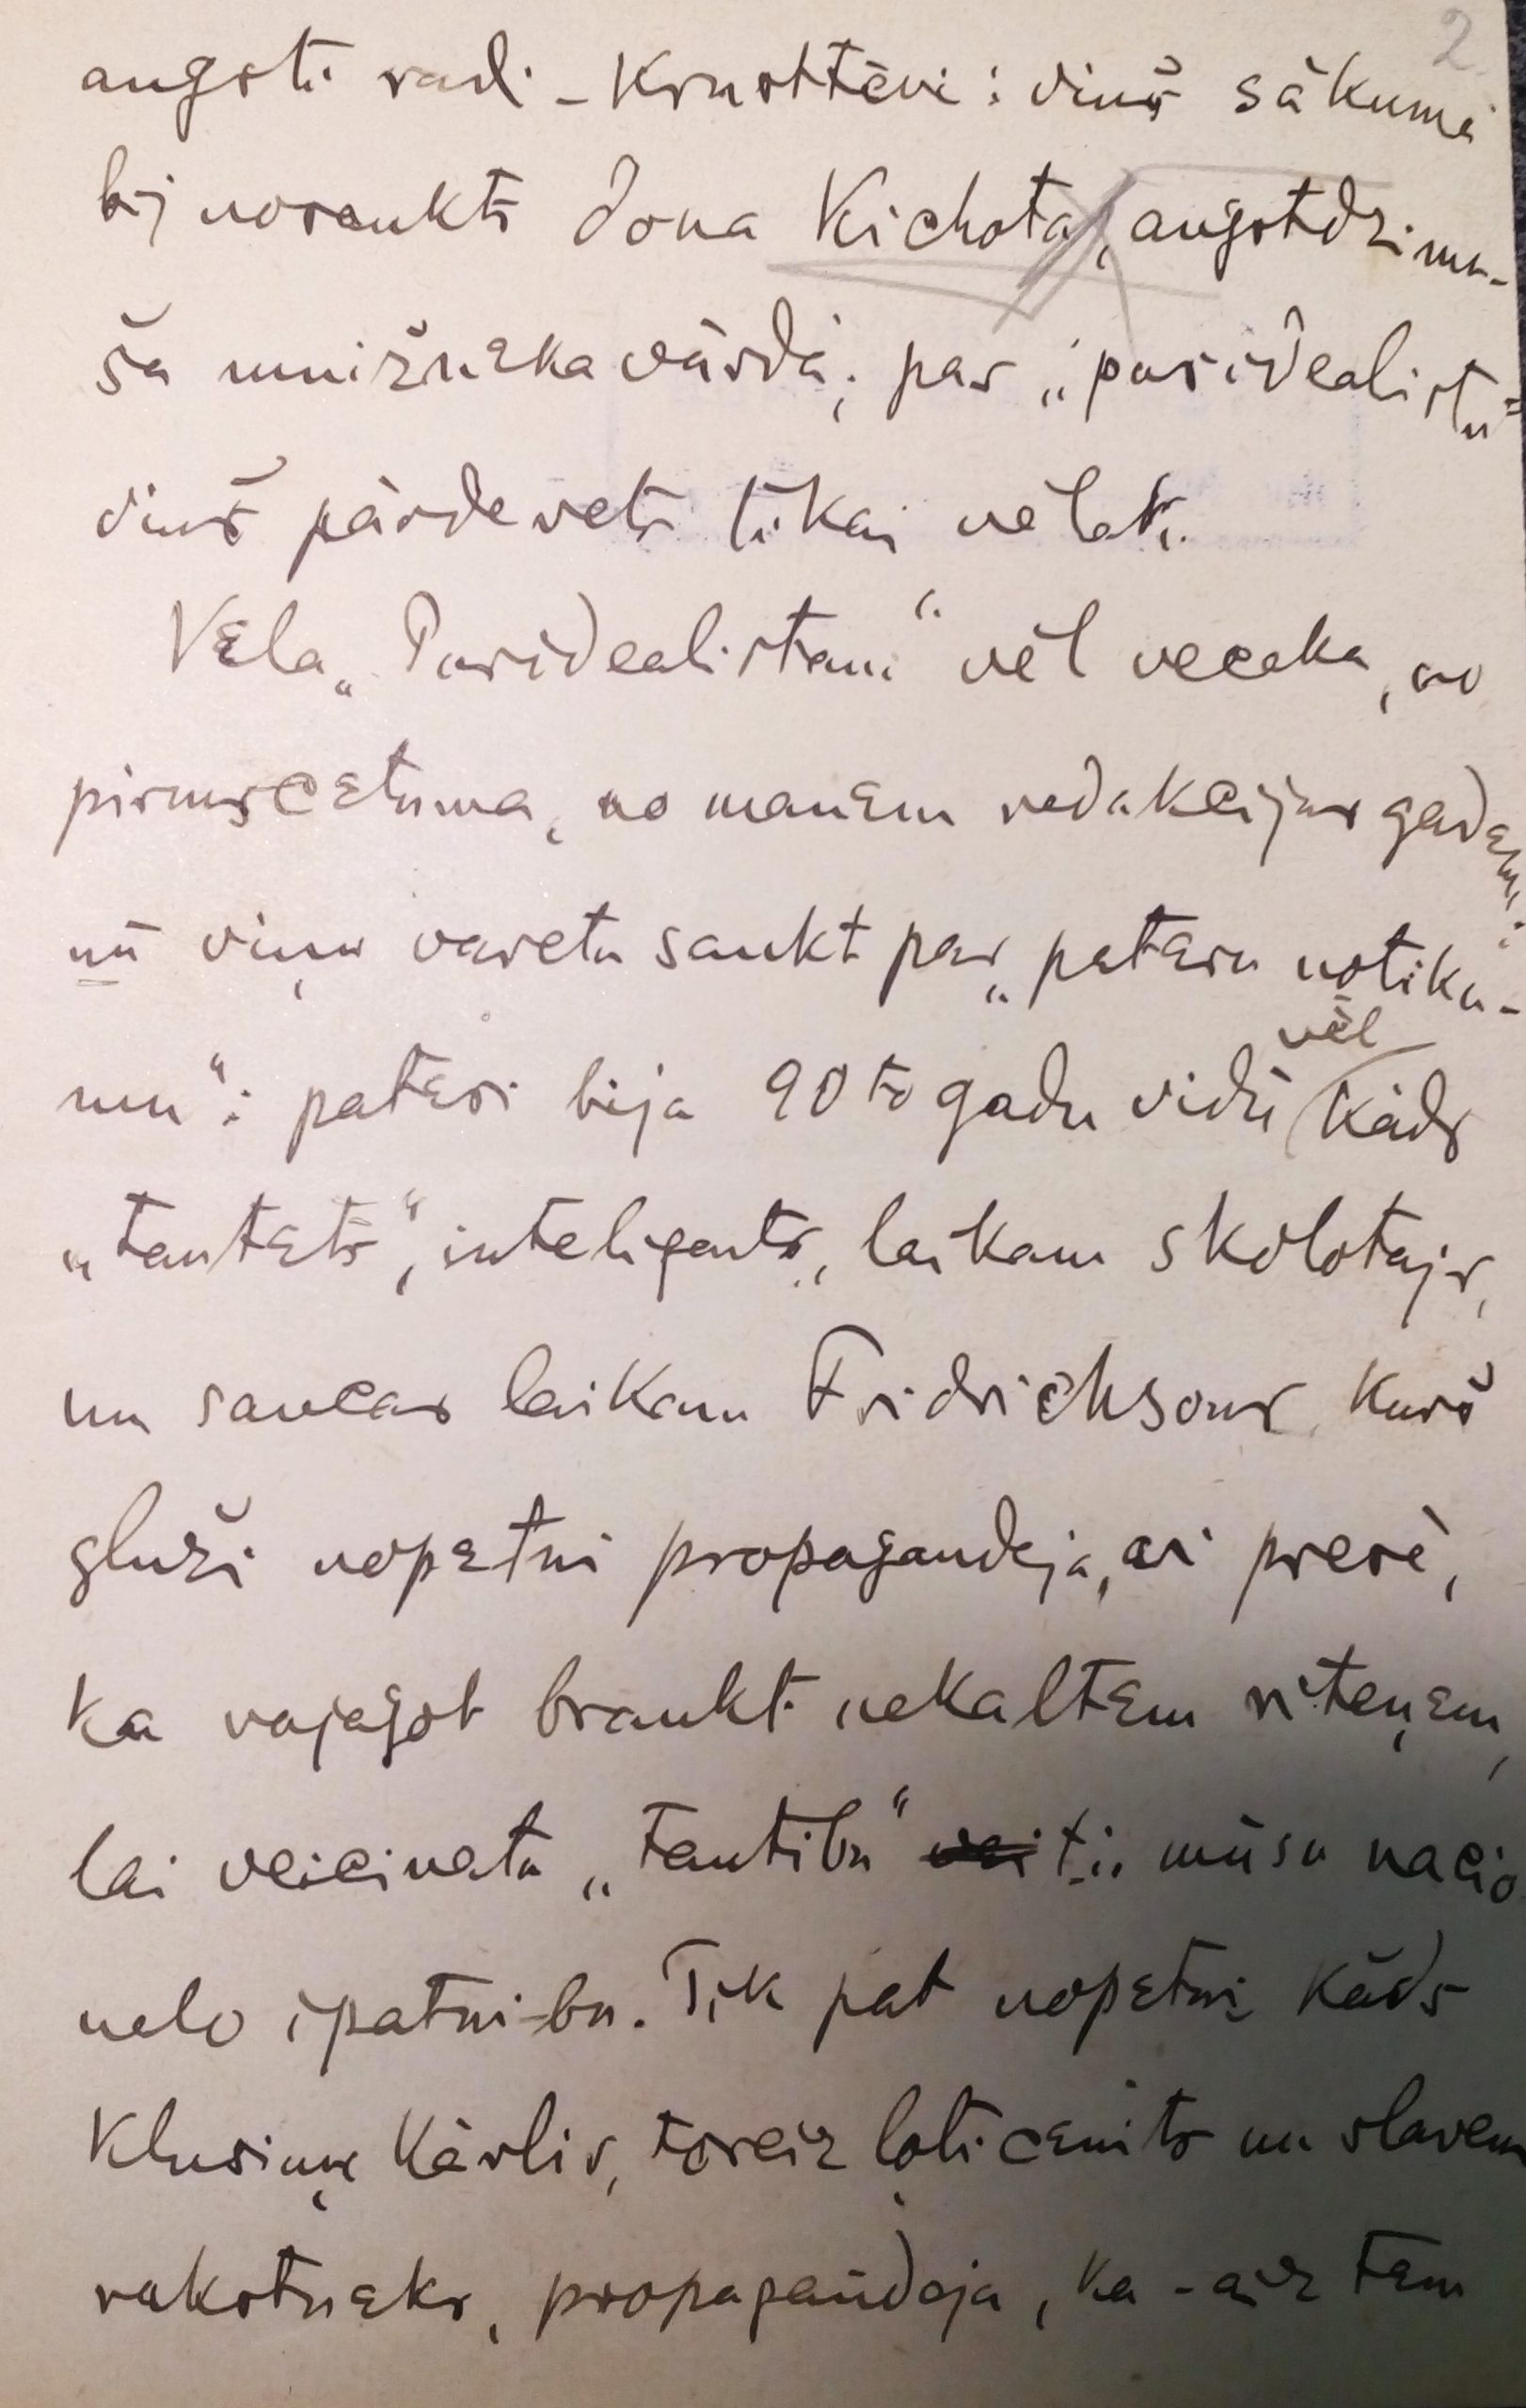 2.
augsti radi - Krusttēvi: viņš sākumā
bij nosaukts dona Kichota, augstdzimu-
ša muižnɛka vārdā; par „puridealistu"
viņš pārdēvets tikai vēlak.
Vɛla „Puridealistam" vēl vecaka, no
pirmscɛtuma, no manɛm redakcijas gadɛm:
nū viņu varetu saukt par „patɛsu notiku-
mu": patɛsi bija 90to gadu vidū vēl kāds
„tautɛts", inteligents, laikam skolotajs,
un saucas laikam Fridrichsons, kurš
gluži nopɛtni propagandeja, ari presē,
ka vajagot braukt nekaltɛm riteņɛm,
lai veicinatu „tautibu" t.i. mūsu nacio
nelo ipatnibu. Tik pat nopɛtni kāds
Klusiņu Kārlis, toreiz ļoti cɛnits un slavens
rakstnɛks, propagandeja, ka - aiz tam